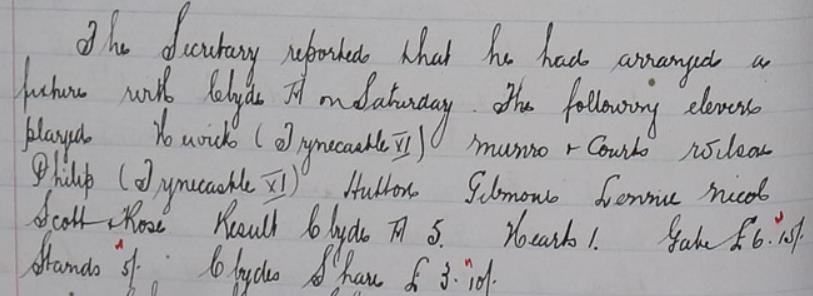 The Secretary reported that he had arranged a
fixture with Clyde FC on Saturday. The following elevens
played Hewick (Tynecastle XI) Munro + Couts Wilson
Philip (Tynecastle XI) Hutton Gilmour Lennie Nicol
Scott + Rose Result Clyde FC 5. Hearts 1. Gate £6.15/.
Stands 5/. Clydes Share £3.10/.